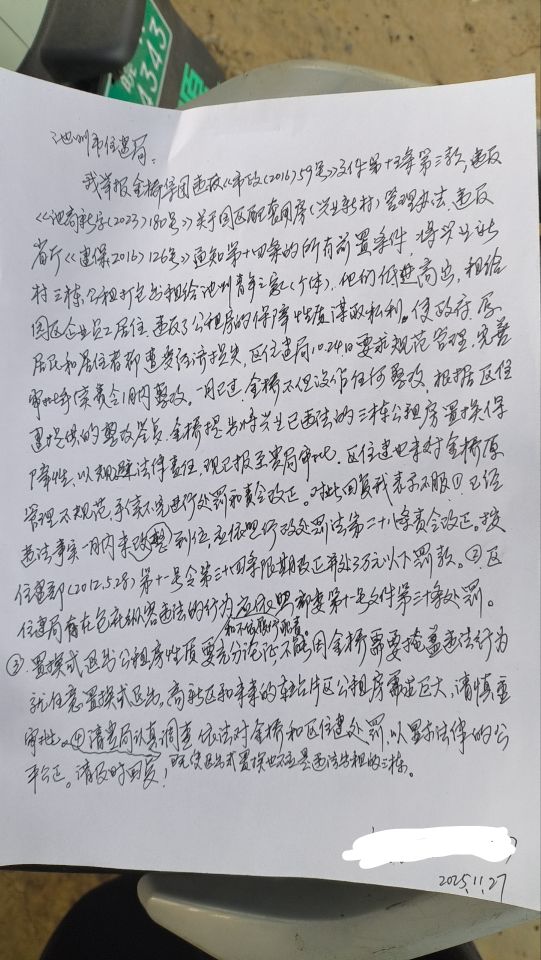 4343
池州市住建局:
我举报金桥集团违反《市政(2016)59号》文件第十五条第三款,违反
《池高新字(2023)180号》关于园区配套用房(兴业新村)管理办法,违反
省厅《建保(2016)126号》通知第十四条的所有前置条件,将兴业新
村三栋公租打包出租给池州青年之家(个体),他们低进高出,租给
园区企业员工居住,违反了公租房的保障性质谋取私利。使政府、原
居民和居住者都遭受经济损失,区住建局10.24日要求规范管理,完善
审批手续责令1月内整改。一月已过,金桥不但没作任何整改,根据区住
建提供的整改答复,金桥提出将兴业已违法的三栋公租房置换保
障性,以规避法律责任,现已报至贵局审批,区住建也未对金桥原
管理不规范,手续不完进行处罚和责令改正。对此回复我表示不服①已经
违法事实一月内未改整到位,应依照行政处罚法第二十八条责令改正。按
住建部(2012.5.28)第十一号令第三十四条限期改正并处3万元以下罚款。②区
住建局存在包庇纵容违法的行为应依照部委第十一号文件第三十条处罚。
和不依职行职责
③.置换或退出公租房性质要充分论证,不能因金桥需要掩盖违法行为
就任意置换或退出。高新区和未来的车站片区公租房需求巨大,请慎重
审批。④请贵局认真调查依法对金桥和区住建处罚,以显示法律的公
平公正。请及时回复!既使退出或置换也不应是违法出租的三栋。
2025.11.27